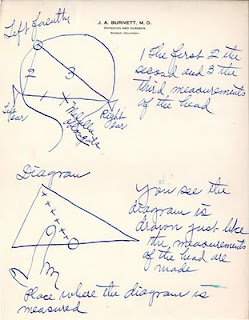 J. A. BURNETT, M. D.
PHYSICIAN AND SURGEON
Left
1 The first 2 the
second and 3 the
third measurements
of the head
2
3
1
Left
ear
Right
ear
Diagram
You see the
diagram is
drawn just like
the measurements
of the head are
made
Place where the diagram is
measured